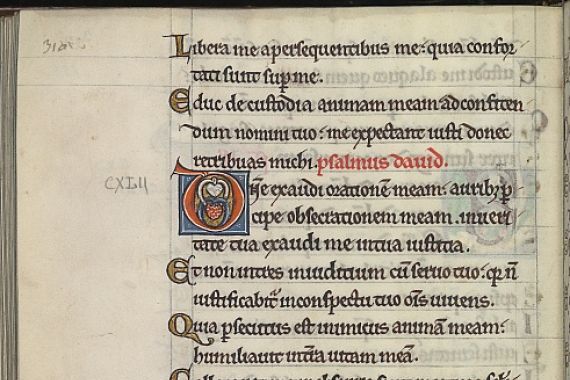 Libera me a persequentibus me: quia confor
tati sunt sup me.
Educ de custodia animam meam ad confiten
dum nomini tuo: me expectant iusti donec
retribuas michi. psalmus dauid.
CXLII
Dñe exaudi orationē meam: auribz p
cipe obsecrationem meam. in ueri
tate tua exaudi me in tua iusticia.
Et non intres in iudicium cū seruo tuo: qr ñ
iustificabit in conspectu tuo oms uiuens.
Quia psecutus est inimicus animā meam:
humiliauit in tra uitam meā.